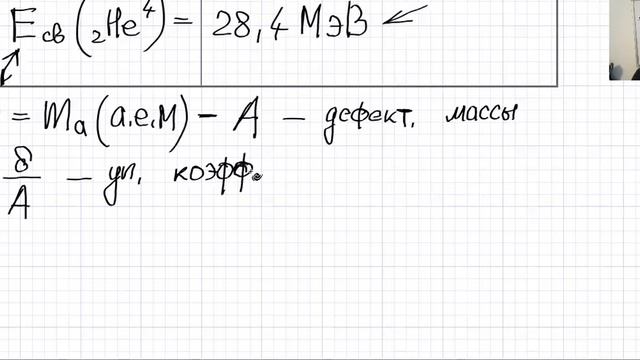 E св (₂He⁴) = 28,4 МэВ
= Ma (а.е.м) - A - дефект. массы
δ/A - уп. коэфф.